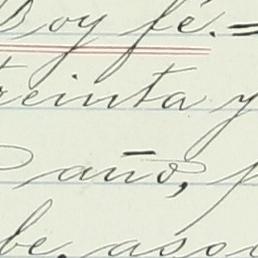 Doy fé.=
treinta y
año,
be, aso